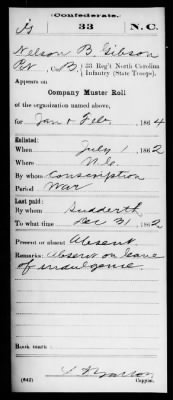 Confederate.
G 33 N.C.
Nelson B. Gibson
Pvt, Co. B, 33 Reg't North Carolina
Infantry (State Troops).
Appears on
Company Muster Roll
of the organization named above,
for Jan & Feb, 1864
Enlisted:
When July 1, 1862
Where N.C.
By whom Conscription
Period War
Last paid:
By whom Sudderth
To what time Dec 31, 1862
Present or absent Absent
Remarks: Absent on leave
of indulgence.
Book mark:
(642) Copyist.